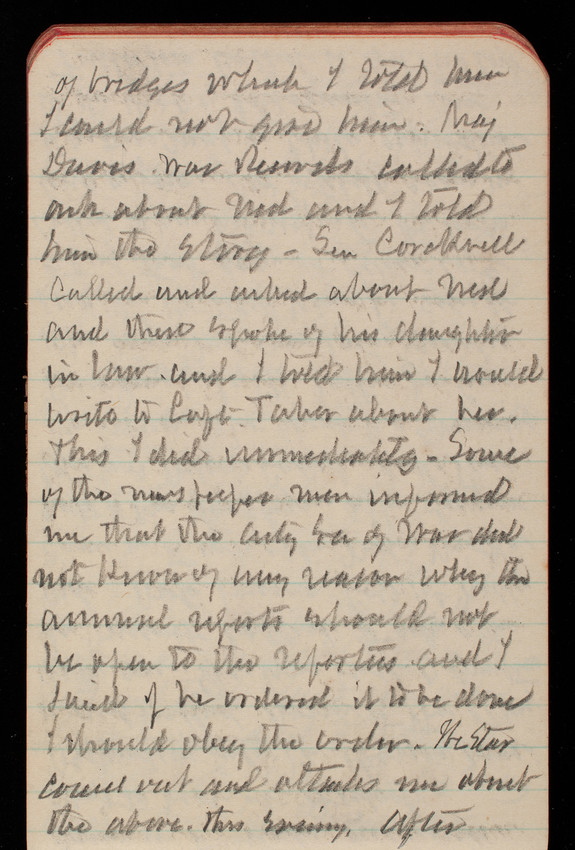 of bridges which I told him
I could not give him. Maj
Davis War Records called to
ask about Ned and I told
him the story - Sen Cockrell
called and asked about Ned
and then spoke of his daughter
in law and I told him I would
write to Capt. Taber about her.
This I did immediately - Some
of the newspaper men informed
me that the actg Sec of War did
not know of any reason why the
annual reports should not
be open to the reporters and I
said if he ordered it to be done
I should obey the order. The Star
comes out and attacks me about
the above this evening. After